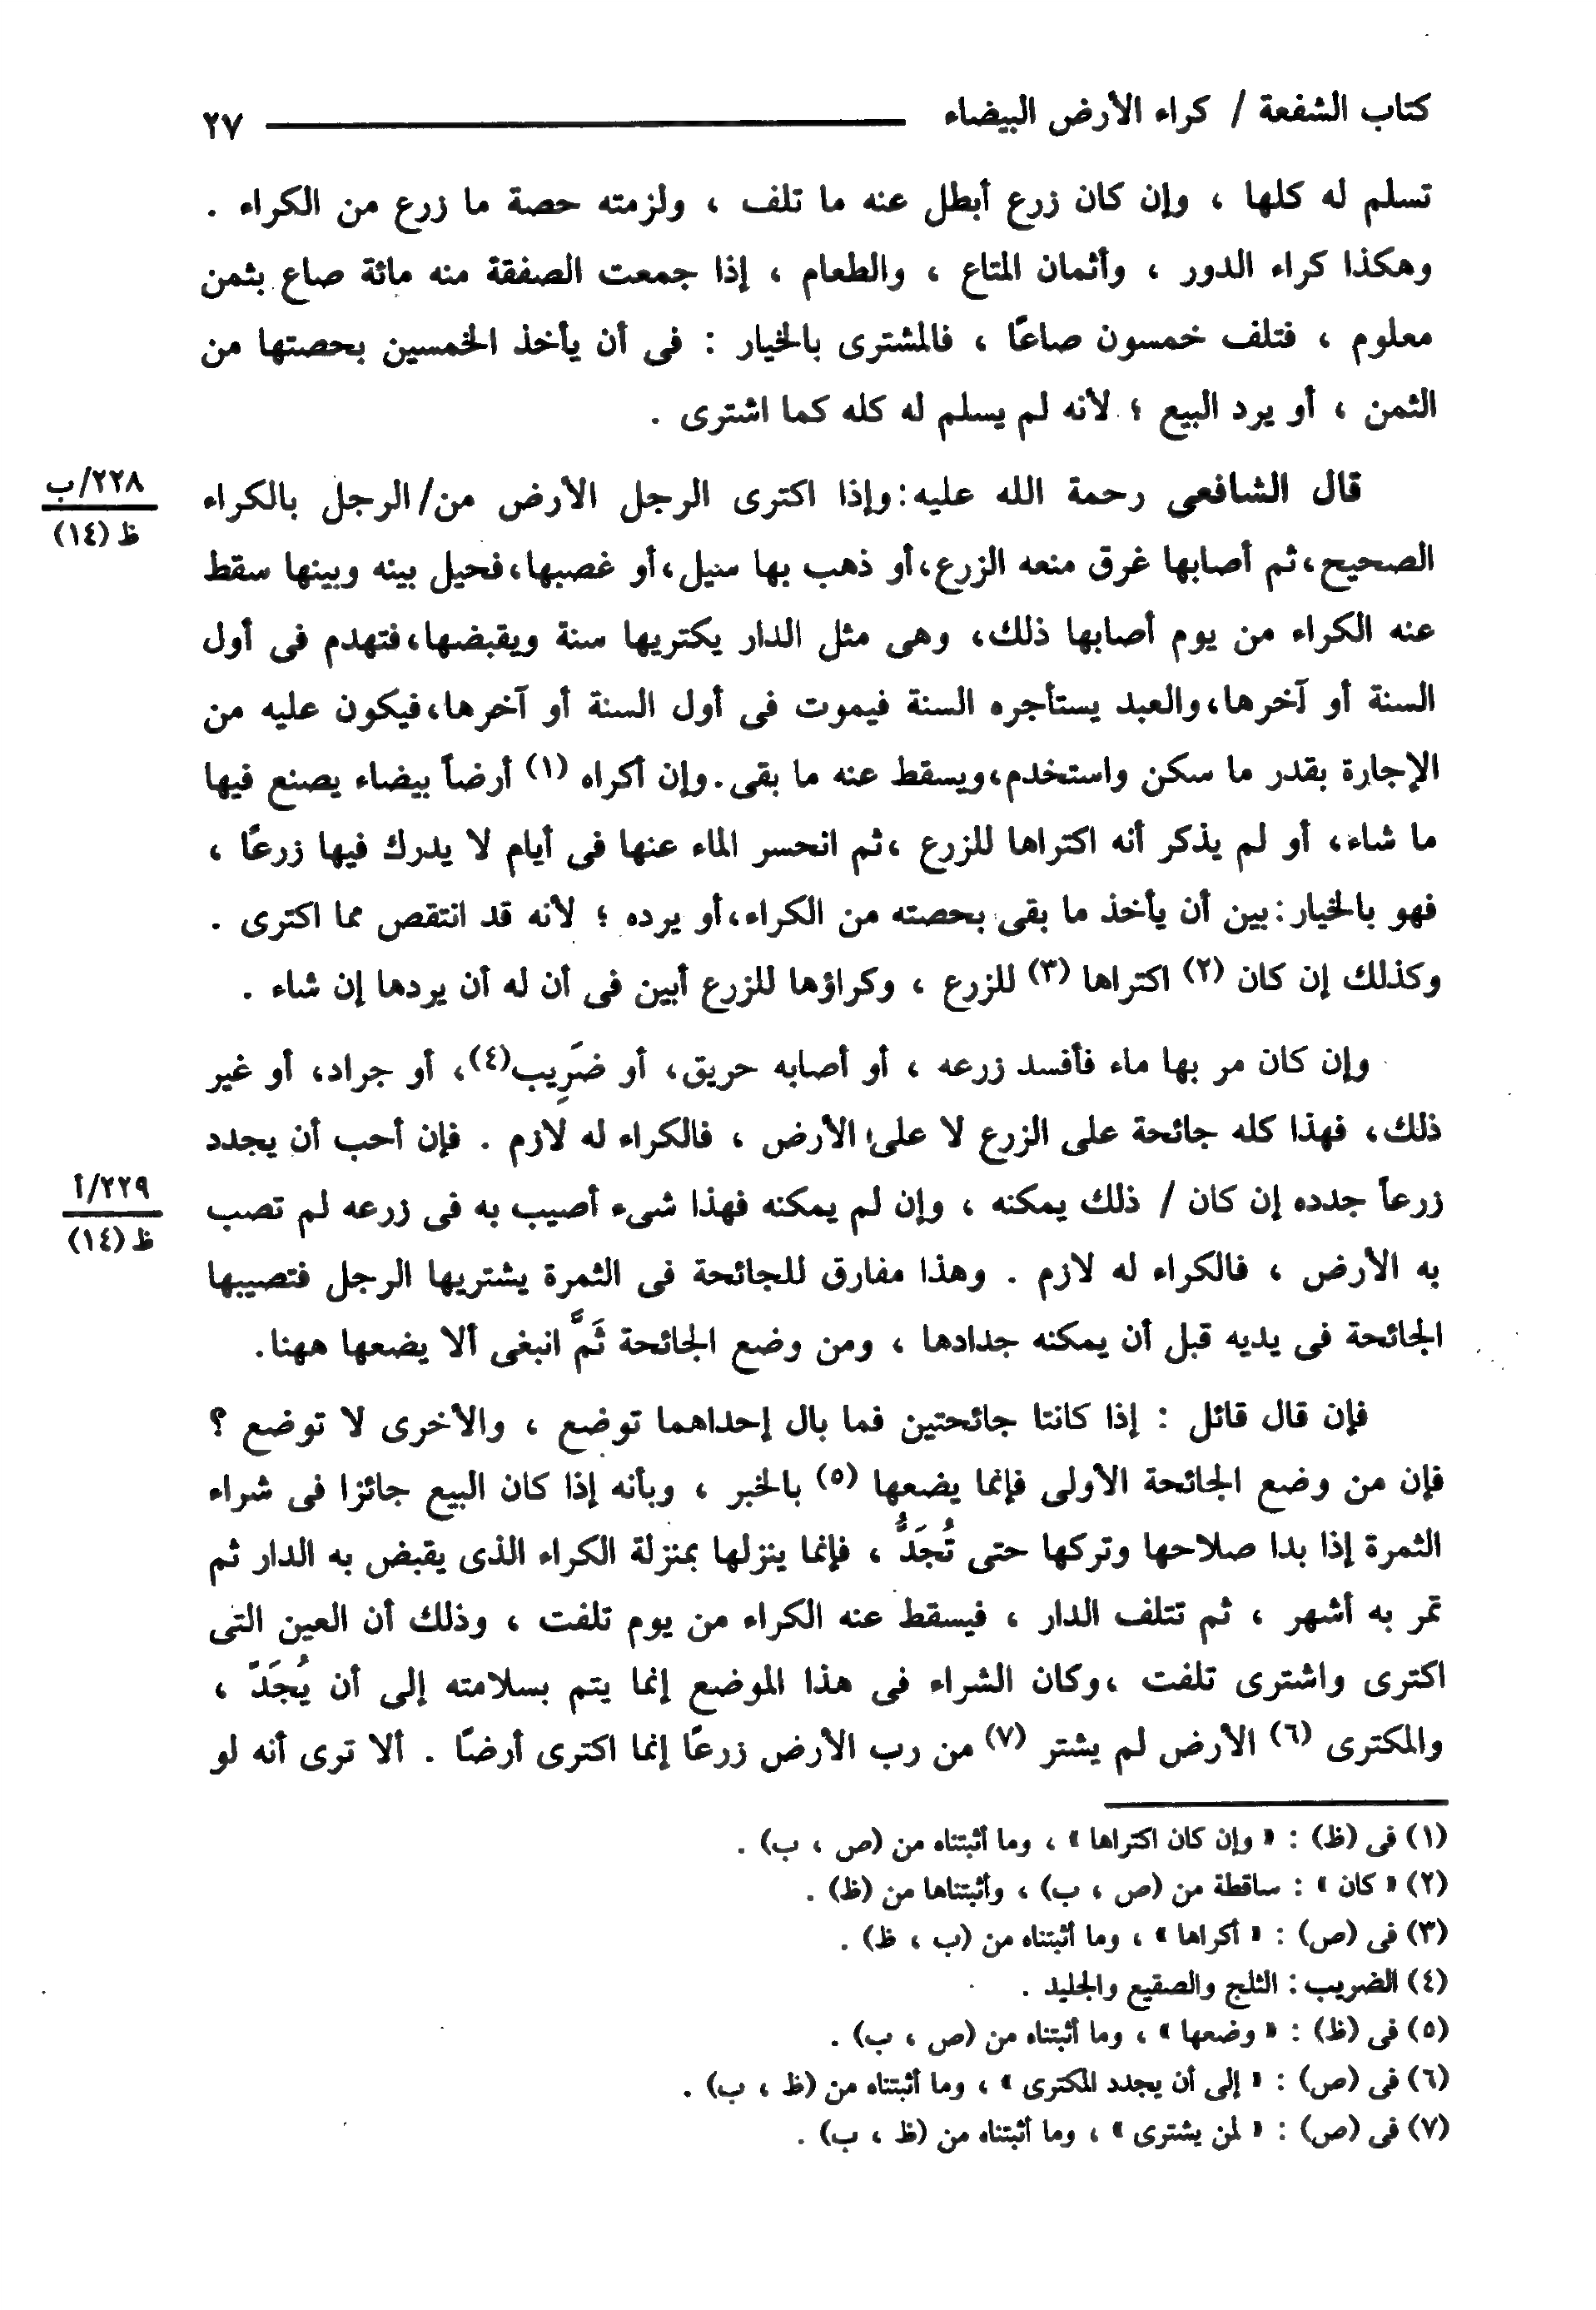 كتاب الشفعة / كراء الأرض البيضاء ٢٧
تسلم له كلها ، وإن كان زرع أبطل عنه ما تلف ، ولزمته حصة ما زرع من الكراء .
وهكذا كراء الدور ، وأثمان المتاع ، والطعام ، إذا جمعت الصفقة منه مائة صاع بثمن
معلوم ، فتلف خمسون صاعًا ، فالمشترى بالخيار : فى أن يأخذ الخمسين بحصتها من
الثمن ، أو يرد البيع ؛ لأنه لم يسلم له كله كما اشترى .
قال الشافعى رحمة الله عليه:وإذا اكترى الرجل الأرض من/الرجل بالكراء
٢٢٨/ب
ظ (١٤)
الصحيح،ثم أصابها غرق منعه الزرع،أو ذهب بها سيل،أو غصبها،فحيل بينه وبينها سقط
عنه الكراء من يوم أصابها ذلك، وهى مثل الدار يكتريها سنة ويقبضها،فتهدم فى أول
السنة أو آخرها،والعبد يستأجره السنة فيموت فى أول السنة أو آخرها،فيكون عليه من
الإجارة بقدر ما سكن واستخدم،ويسقط عنه ما بقى.وإن أكراه (١) أرضاً بيضاء يصنع فيها
ما شاء، أو لم يذكر أنه اكتراها للزرع ،ثم انحسر الماء عنها فى أيام لا يدرك فيها زرعًا ،
فهو بالخيار:بين أن يأخذ ما بقى بحصته من الكراء،أو يرده ؛ لأنه قد انتقص مما اكترى .
وكذلك إن كان (٢) اكتراها (٣) للزرع ، وكراؤها للزرع أبين فى أن له أن يردها إن شاء .
وإن كان مر بها ماء فأفسد زرعه ، أو أصابه حريق، أو ضَرِيب(٤)، أو جراد، أو غير
ذلك، فهذا كله جائحة على الزرع لا على الأرض ، فالكراء له لازم . فإن أحب أن يجدد
زرعاً جدده إن كان / ذلك يمكنه ، وإن لم يمكنه فهذا شىء أصيب به فى زرعه لم تصب
٢٢٩/أ
ظ (١٤)
به الأرض ، فالكراء له لازم . وهذا مفارق للجائحة فى الثمرة يشتريها الرجل فتصيبها
الجائحة فى يديه قبل أن يمكنه جدادها ، ومن وضع الجائحة ثَمَّ انبغى ألا يضعها ههنا.
فإن قال قائل : إذا كانتا جائحتين فما بال إحداهما توضع ، والأخرى لا توضع ؟
فإن من وضع الجائحة الأولى فإنما يضعها (٥) بالخبر ، وبأنه إذا كان البيع جائزا فى شراء
الثمرة إذا بدا صلاحها وتركها حتى تُجَدُّ ، فإنما ينزلها بمنزلة الكراء الذى يقبض به الدار ثم
تمر به أشهر ، ثم تتلف الدار ، فيسقط عنه الكراء من يوم تلفت ، وذلك أن العين التى
اكترى واشترى تلفت ،وكان الشراء فى هذا الموضع إنما يتم بسلامته إلى أن يُجَدَّ ،
والمكترى (٦) الأرض لم يشتر (٧) من رب الأرض زرعًا إنما اكترى أرضًا . ألا ترى أنه لو
(١) فى (ظ) : « وإن كان اكتراها » ، وما أثبتناه من (ص ، ب) .
(٢) « كان » : ساقطة من (ص ، ب) ، وأثبتناها من (ظ) .
(٣) فى (ص) : « أكراها » ، وما أثبتناه من (ب ، ظ) .
(٤) الضريب : الثلج والصقيع والجليد .
(٥) فى (ظ) : « وضعها » ، وما أثبتناه من (ص ، ب) .
(٦) فى (ص) : « إلى أن يجدد المكترى » ، وما أثبتناه من (ظ ، ب) .
(٧) فى (ص) : « لمن يشترى » ، وما أثبتناه من (ظ ، ب) .